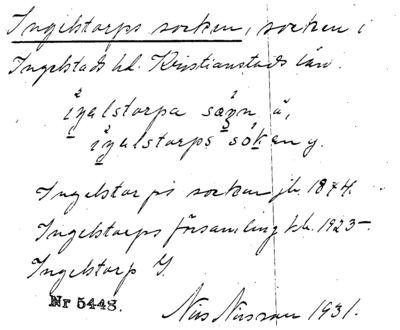 Ingelstorps socken, socken i
Ingelstads hd. Kristianstads län.
iŋalstorpa sæŋn ä,
iŋalstorps sokən y.
Ingelstorps socken jb. 1874.
Ingelstorps församling kb. 1923–
Ingelstorp G.
Nr 5448.
Nils Nilsson 1931.